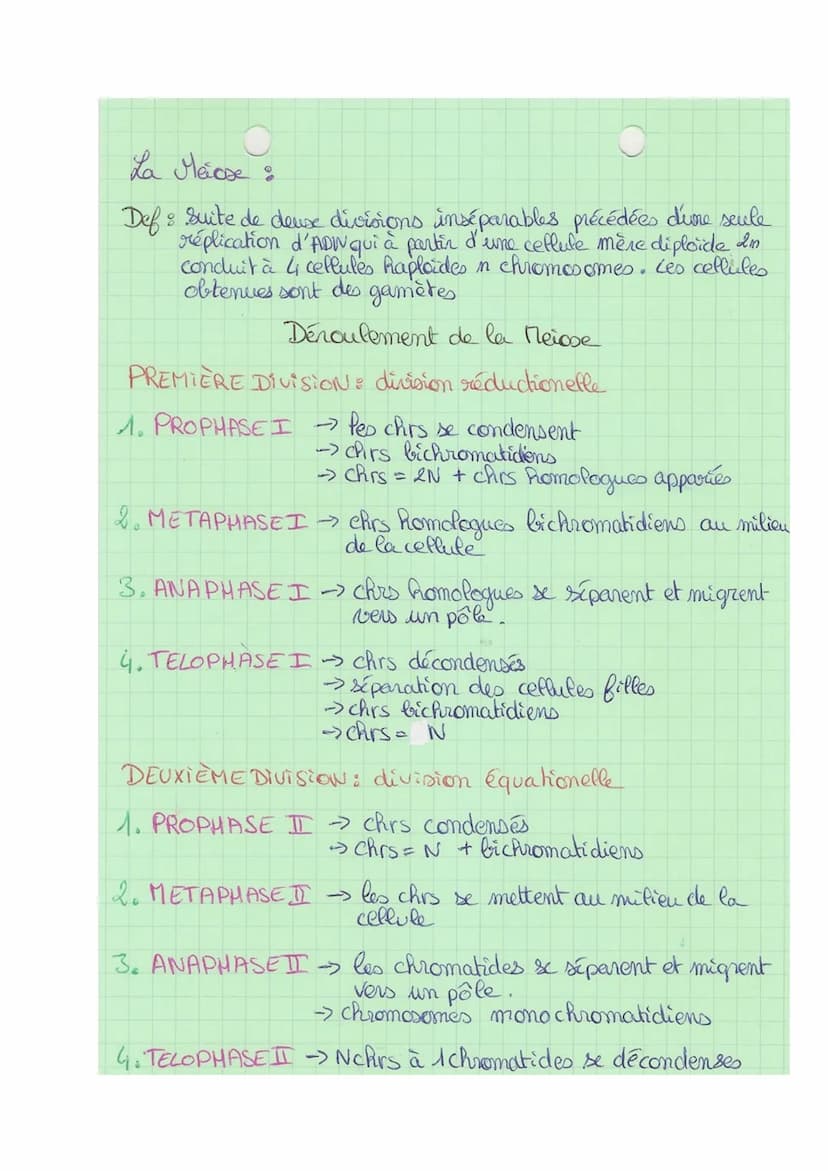 La Meiose :
Def : Suite de deux divisions inséparables précédées d'une seule
réplication d'ADN qui à partir d'une cellule mère diploïde 2n
conduit à 4 cellules haploïdes n chromosomes. Les cellules
obtenues sont des gamètes
Déroulement de la Meiose
PREMIÈRE DIVISION : division réductionelle
1. PROPHASE I → les chrs se condensent
→ chrs bichromatidiens
→ chrs = 2N + chrs homologues appariés
2. METAPHASE I → chrs homologues bichromatidiens au milieu
de la cellule
3. ANAPHASE I → chrs homologues se séparent et migrent
vers un pôle.
4. TELOPHASE I → chrs décondensés
→ séparation des cellules filles
→ chrs bichromatidiens
→ chrs = N
DEUXIÈME DIVISION : division équationelle
1. PROPHASE II → chrs condensés
→ chrs = N + bichromatidiens
2. METAPHASE II → les chrs se mettent au milieu de la
cellule
3. ANAPHASE II → les chromatides se séparent et migrent
vers un pôle.
→ chromosomes monochromatidiens
4. TELOPHASE II → N chrs à 1 chromatides se décondenses